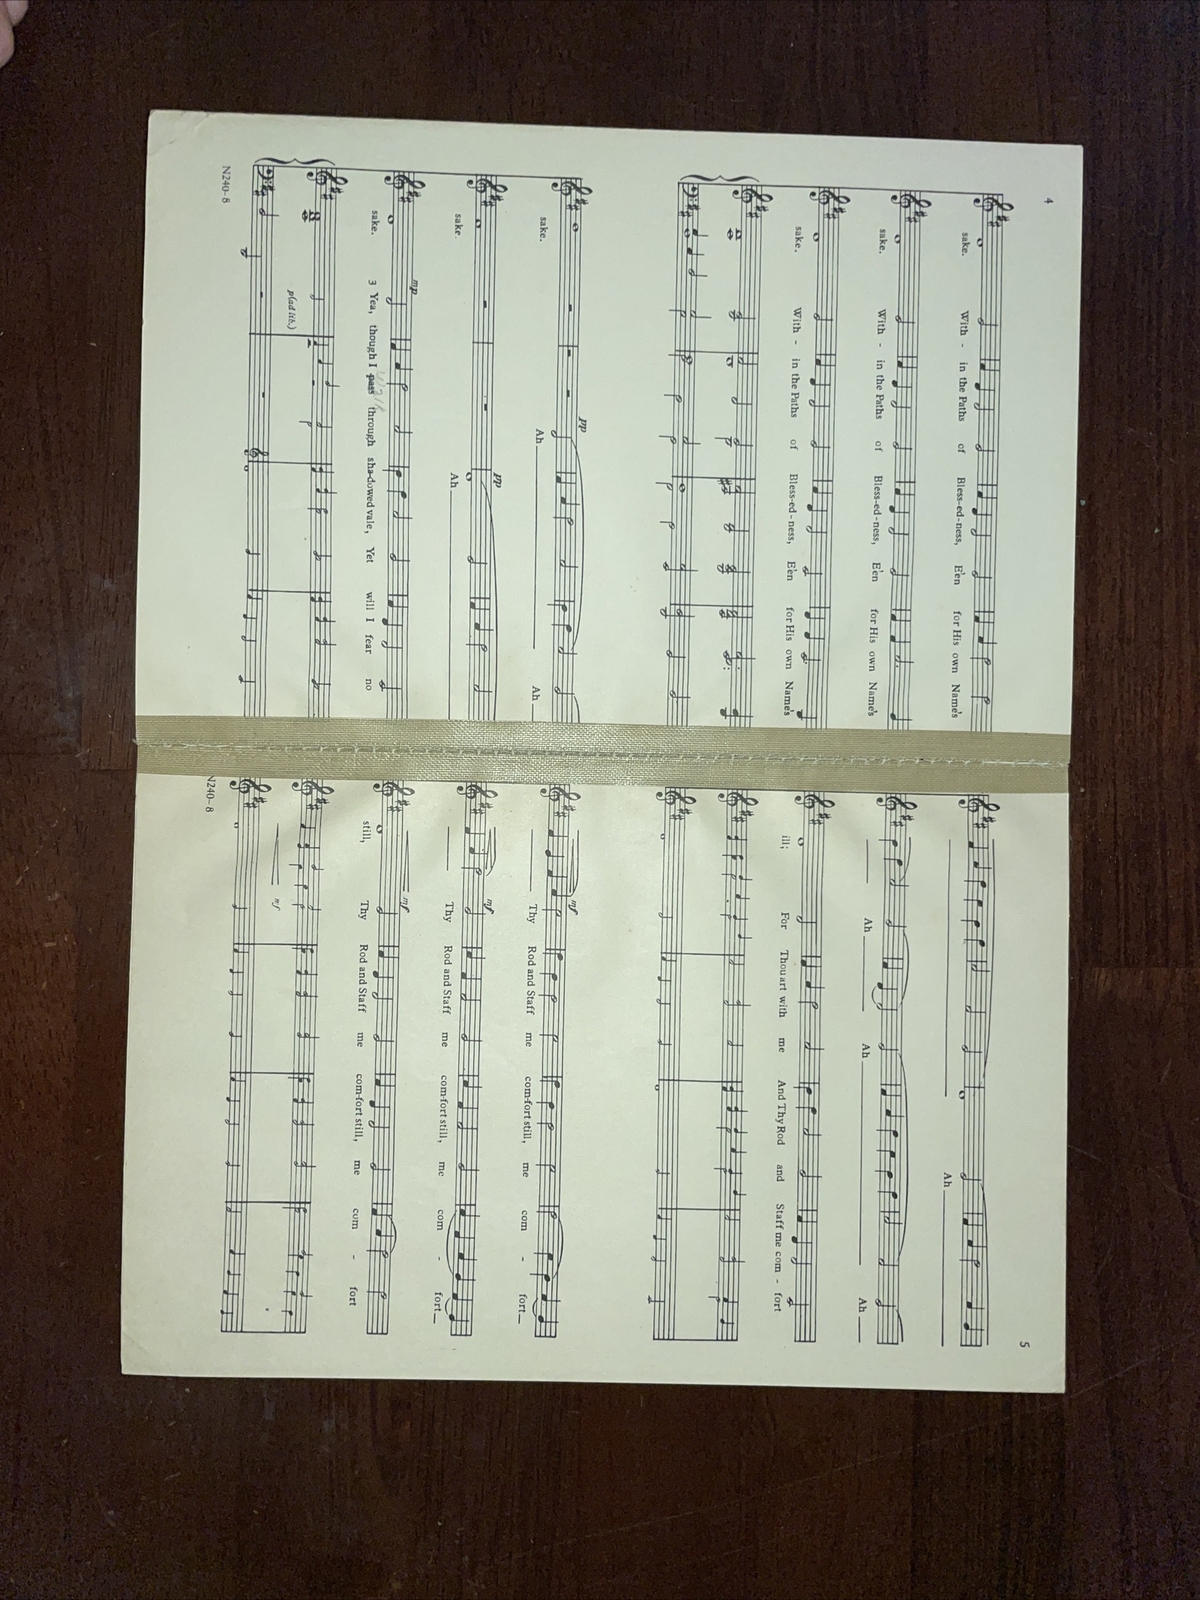 4
sake. With - in the Paths of Bless-ed-ness, E'en for His own Name's
sake. With - in the Paths of Bless-ed-ness, E'en for His own Name's
sake. With - in the Paths of Bless-ed-ness, E'en for His own Name's
pp
sake. Ah Ah
pp
sake. Ah
mp
sake. 3 Yea, though I pass through sha-dowed vale, Yet will I fear no
walk
p(ad lib.)
N240-8
5
Ah
Ah Ah Ah
ill; For Thou art with me And Thy Rod and Staff me com - fort
mf
Thy Rod and Staff me com-fort still, me com - fort
mf
Thy Rod and Staff me com-fort still, me com - fort
mf
still, Thy Rod and Staff me com-fort still, me com - fort
mf
N240-8